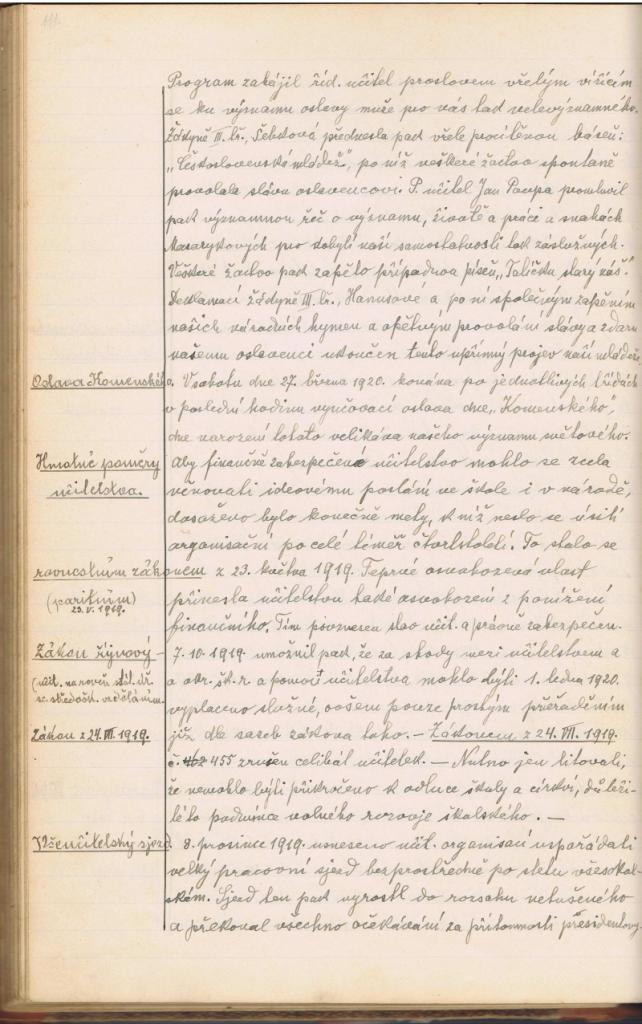 111.
Program zahájil říd. učitel proslovem vřelým vížícím
se ku významu oslavy muže pro nás tad velevýznamného.
Žákyně III. tř., Šebková přednesla pak vřele procítěnou báseň:
„Československá mládež", po níž veškeré žactvo spontaně
provolalo slávu oslavencovi. P. učitel Jan Poupa promluvil
pak významnou řeč o významu, životě a práci a snahách
Masarykových pro dobytí naší samostatnosti tak záslužných.
Veškeré žactvo pak zapělo případnou píseň „Tatíčku starý náš".
Deklamací žákyně III. tř., Hanusové a po ní společným zapěním
našich národních hymen a opětným provolání slávy a zdaru
našemu oslavenci ukončen tento upřímný projev naší mládeže.
Oslava Komenského. V sobotu dne 27. března 1920. konána po jednotlivých třídách
v poslední hodinu vyučovací oslava dne „Komenského",
dne narození tohoto velikána našeho významu světového.
Hmotné poměry Aby finančně zabezpečené učitelstvo mohlo se zcela
učitelstva. věnovati ideovému poslání ve škole i v národě,
dosaženo bylo konečně mety, k níž neslo se úsilí
organisační po celé téměř čtvrtstoletí. To stalo se
rovnostním zákonem z 23. května 1919. Teprvé osvobozená vlast
(paritním) přinesla učitelstvu také osvobození z ponížení
23. V. 1919. finančního. Tím povznesen stav učit. a právně zabezpečen.
Zákon říjnový – 7. 10. 1919 umožnil pak, že za shody mezi učitelstvem a
(učit. na roveň stát. úř. a okr. šk. r. a pomocí učitelstva mohlo býti 1. ledna 1920.
se středošk. vzděláním. vyplaceno služné, ovšem pouze prostým přeřaděním
Zákon z 24. VII. 1919. již dle sazeb zákona toho. – Zákonem z 24. VII. 1919.
č. 455 zrušen celibát učitelek. – Nutno jen litovati,
že nemohlo býti přikročeno k odluce školy a církví, důleži-
této podmínce volného rozvoje školského. –
Všeučitelský sjezd. 8. prosince 1919. usneseno učit. organisací uspořádati
velký pracovní sjezd bezprostředně po sletu všesokol-
ském. Sjezd ten pak vyrostl do rozsahu netušeného
a překonal všechno očekávání za přítomnosti presidentovy